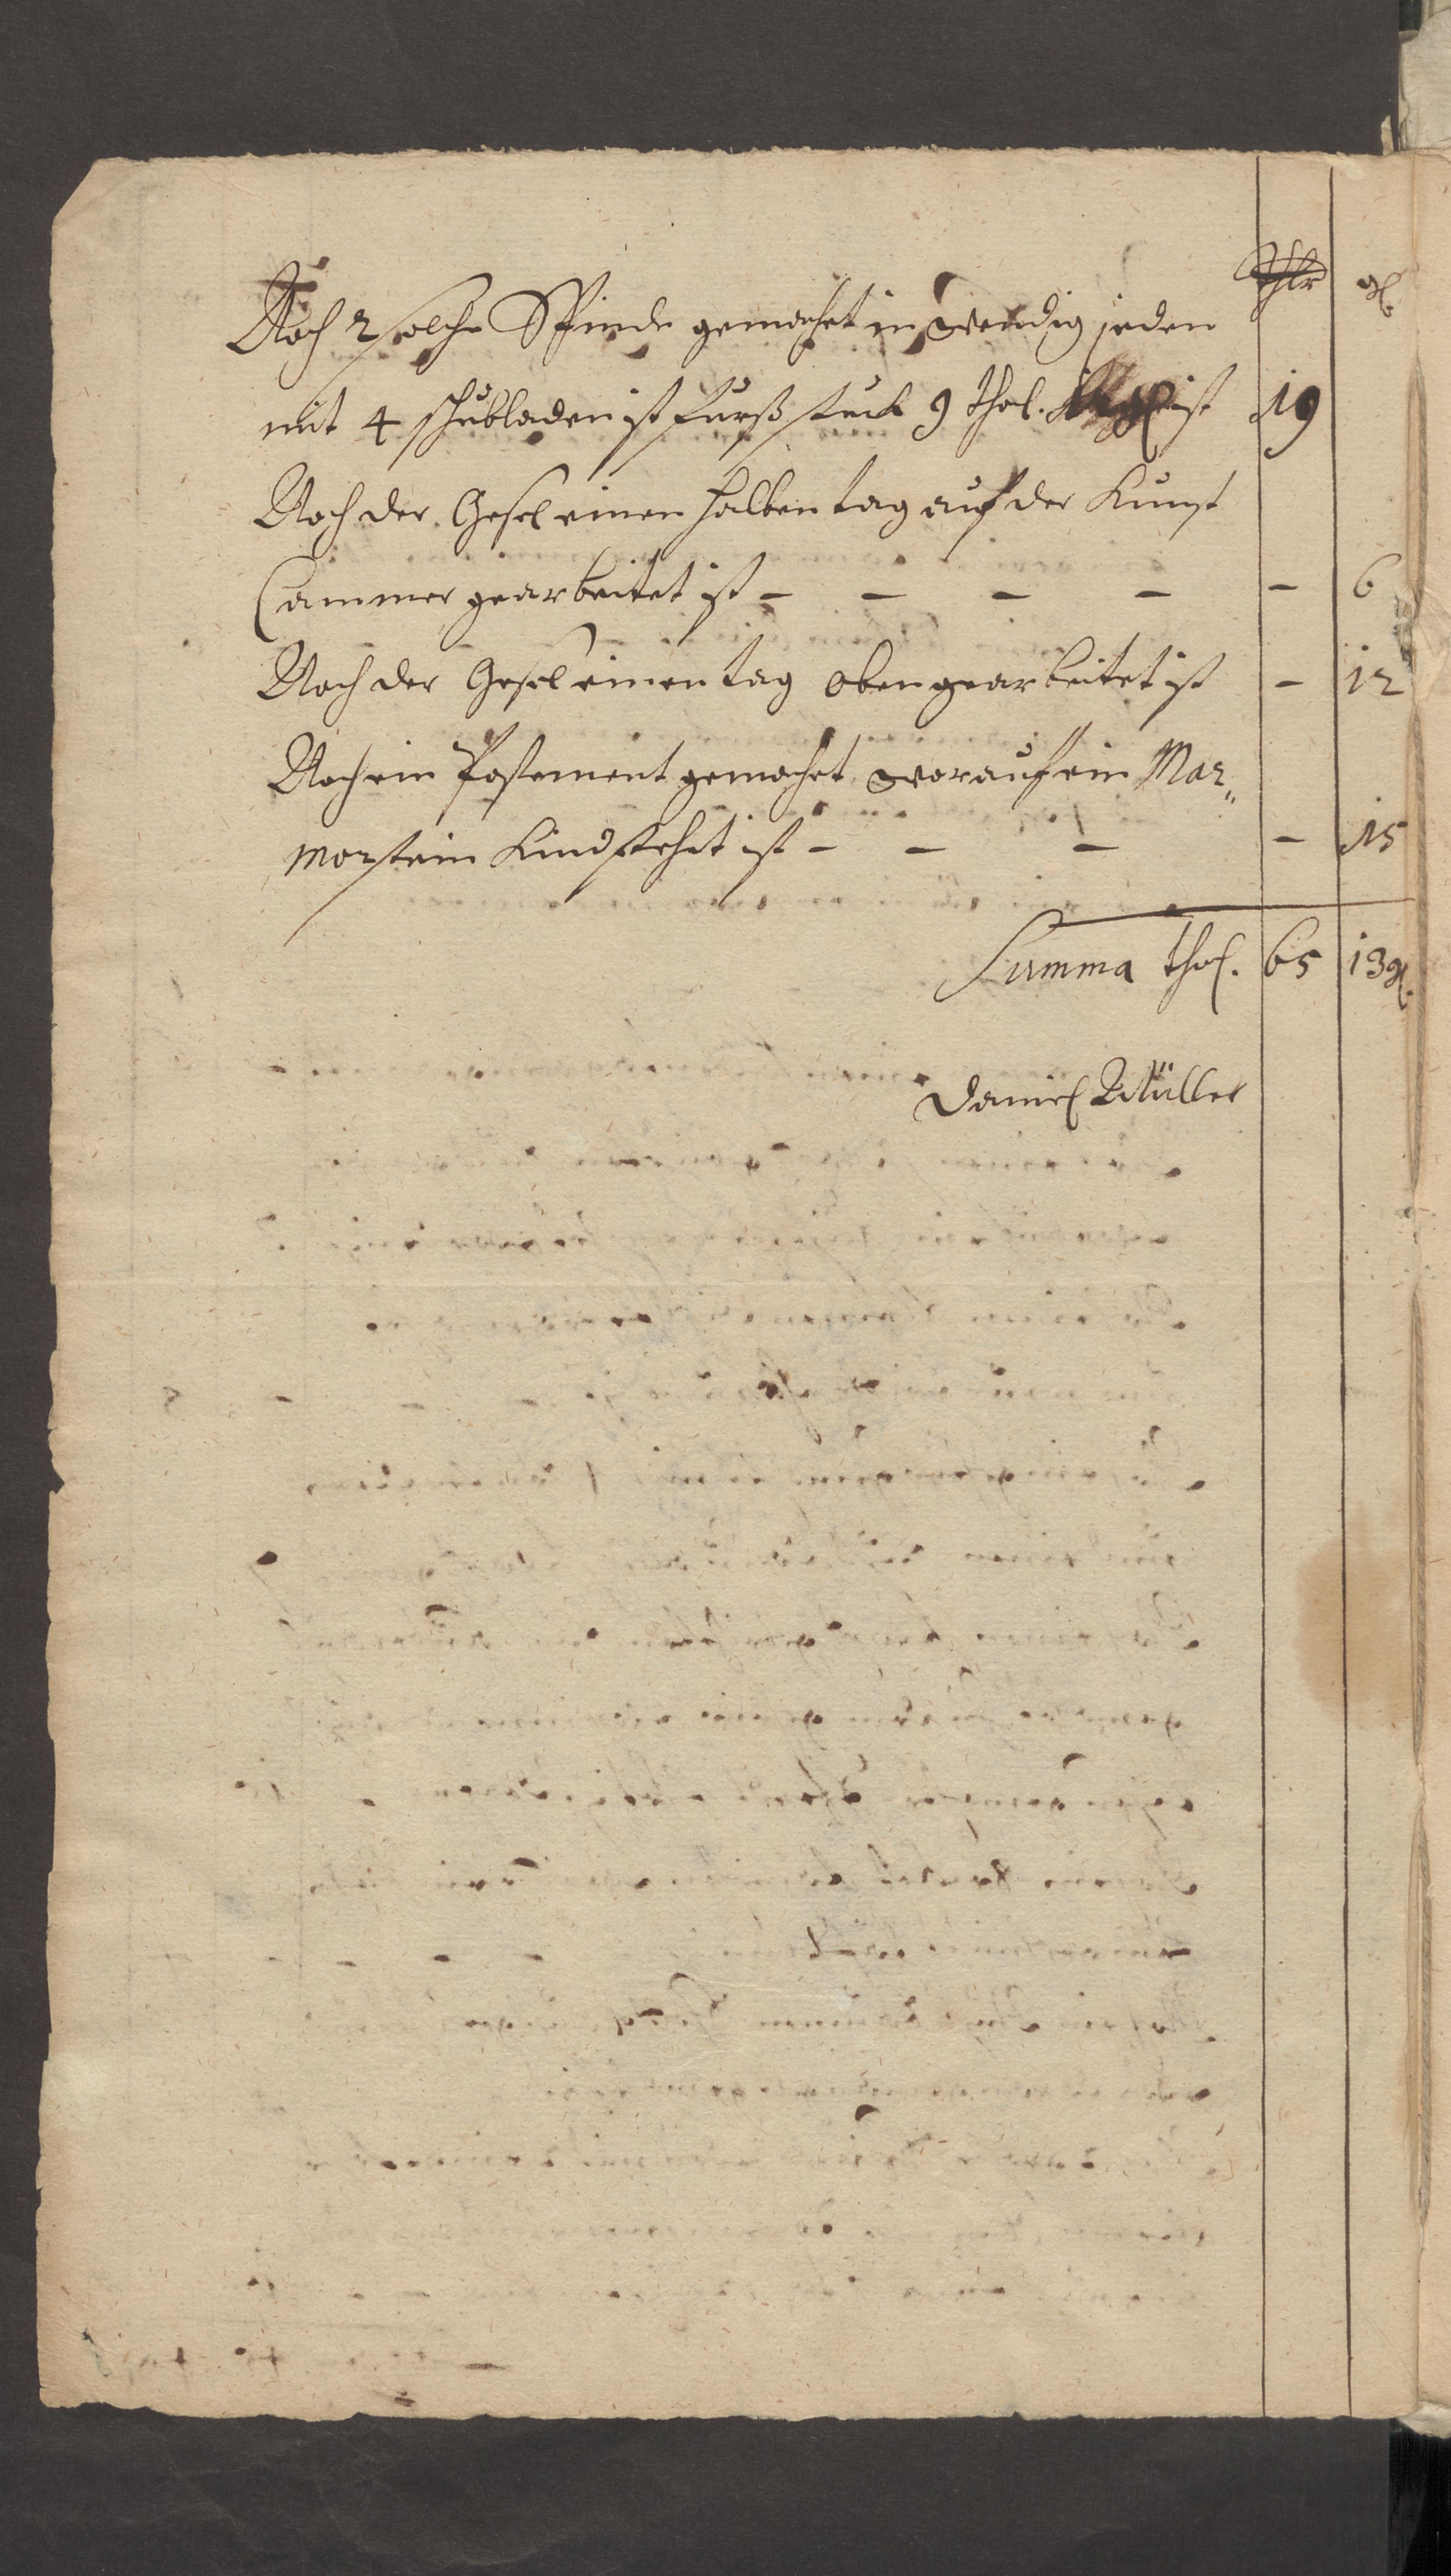 Thlr gl
Noch 2 solche Spinde gemachet in wendig jeden
mit 4 schubladen ist furß stuck 9 thal. ist 19
Noch der Gesel einen halben tag auf der Kunst
Cammer gearbeitet ist – – – – – 6
Noch der Gesel einen tag oben gearbeitet ist – 12
Noch ein Postement gemachet worauf ein Mar„
morstein Kind stehet ist – – – – 15
Summa thal. 65 13 gl.
Daniel Müller